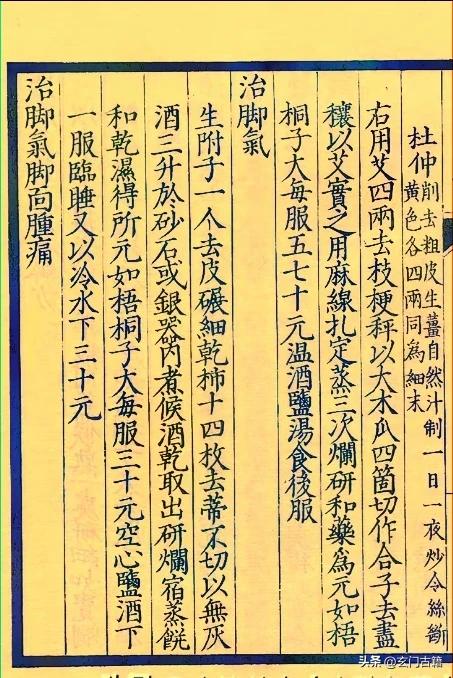 杜仲削去粗皮生薑自然汁制一日一夜炒令絲斷
黄色各四兩同為細末
右用艾四兩去枝梗秤以大木瓜四箇切作合子去盡
穰以艾實之用麻線扎定蒸三次爛研和藥為元如梧
桐子大每服五七十元温酒鹽湯食後服
治脚氣
生附子一个去皮碾細乾柿十四枚去蒂不切以無灰
酒三升於砂石或銀器内煮候酒乾取出研爛宿蒸餅
和乾濕得所元如梧桐子大每服三十元空心鹽酒下
一服臨睡又以冷水下三十元
治脚氣脚面腫痛
头条 @玄门古籍